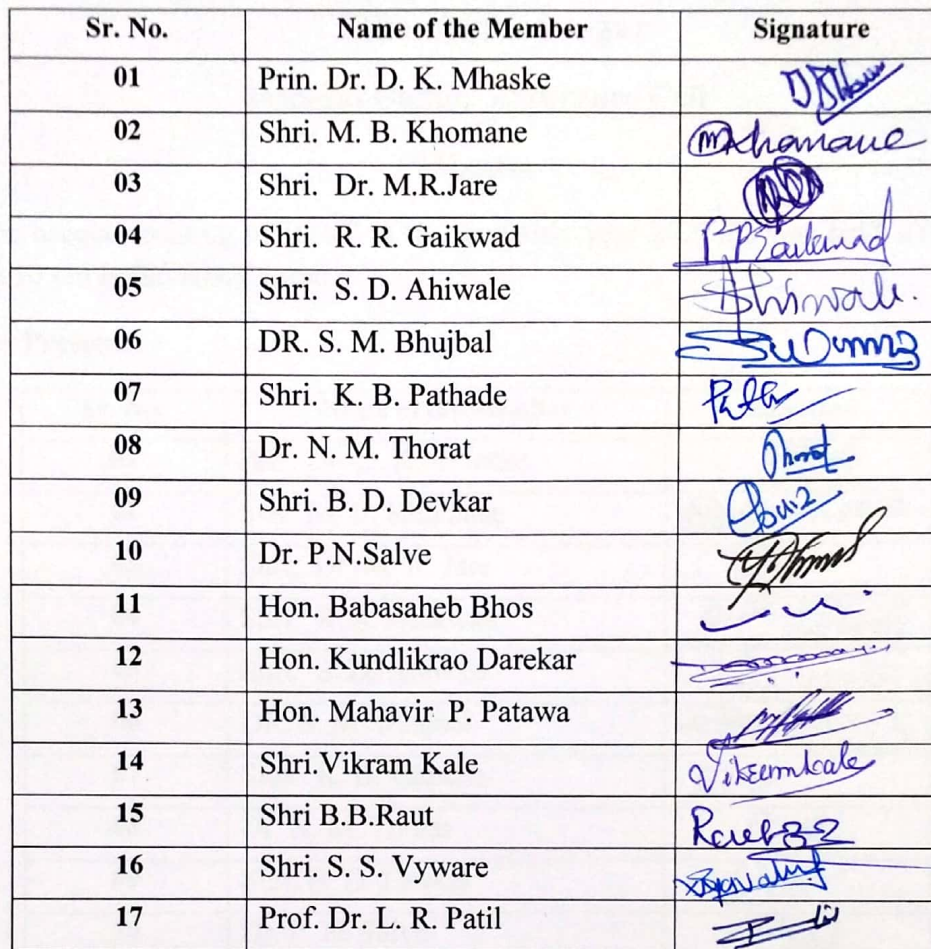 Sr. No. Name of the Member Signature
01 Prin. Dr. D. K. Mhaske
02 Shri. M. B. Khomane MKhomane
03 Shri. Dr. M.R.Jare
04 Shri. R. R. Gaikwad RRGaikwad
05 Shri. S. D. Ahiwale Ahiwale.
06 DR. S. M. Bhujbal
07 Shri. K. B. Pathade
08 Dr. N. M. Thorat Thorat
09 Shri. B. D. Devkar
10 Dr. P.N.Salve
11 Hon. Babasaheb Bhos
12 Hon. Kundlikrao Darekar
13 Hon. Mahavir P. Patawa
14 Shri.Vikram Kale Vikramkale
15 Shri B.B.Raut Raut BB
16 Shri. S. S. Vyware
17 Prof. Dr. L. R. Patil